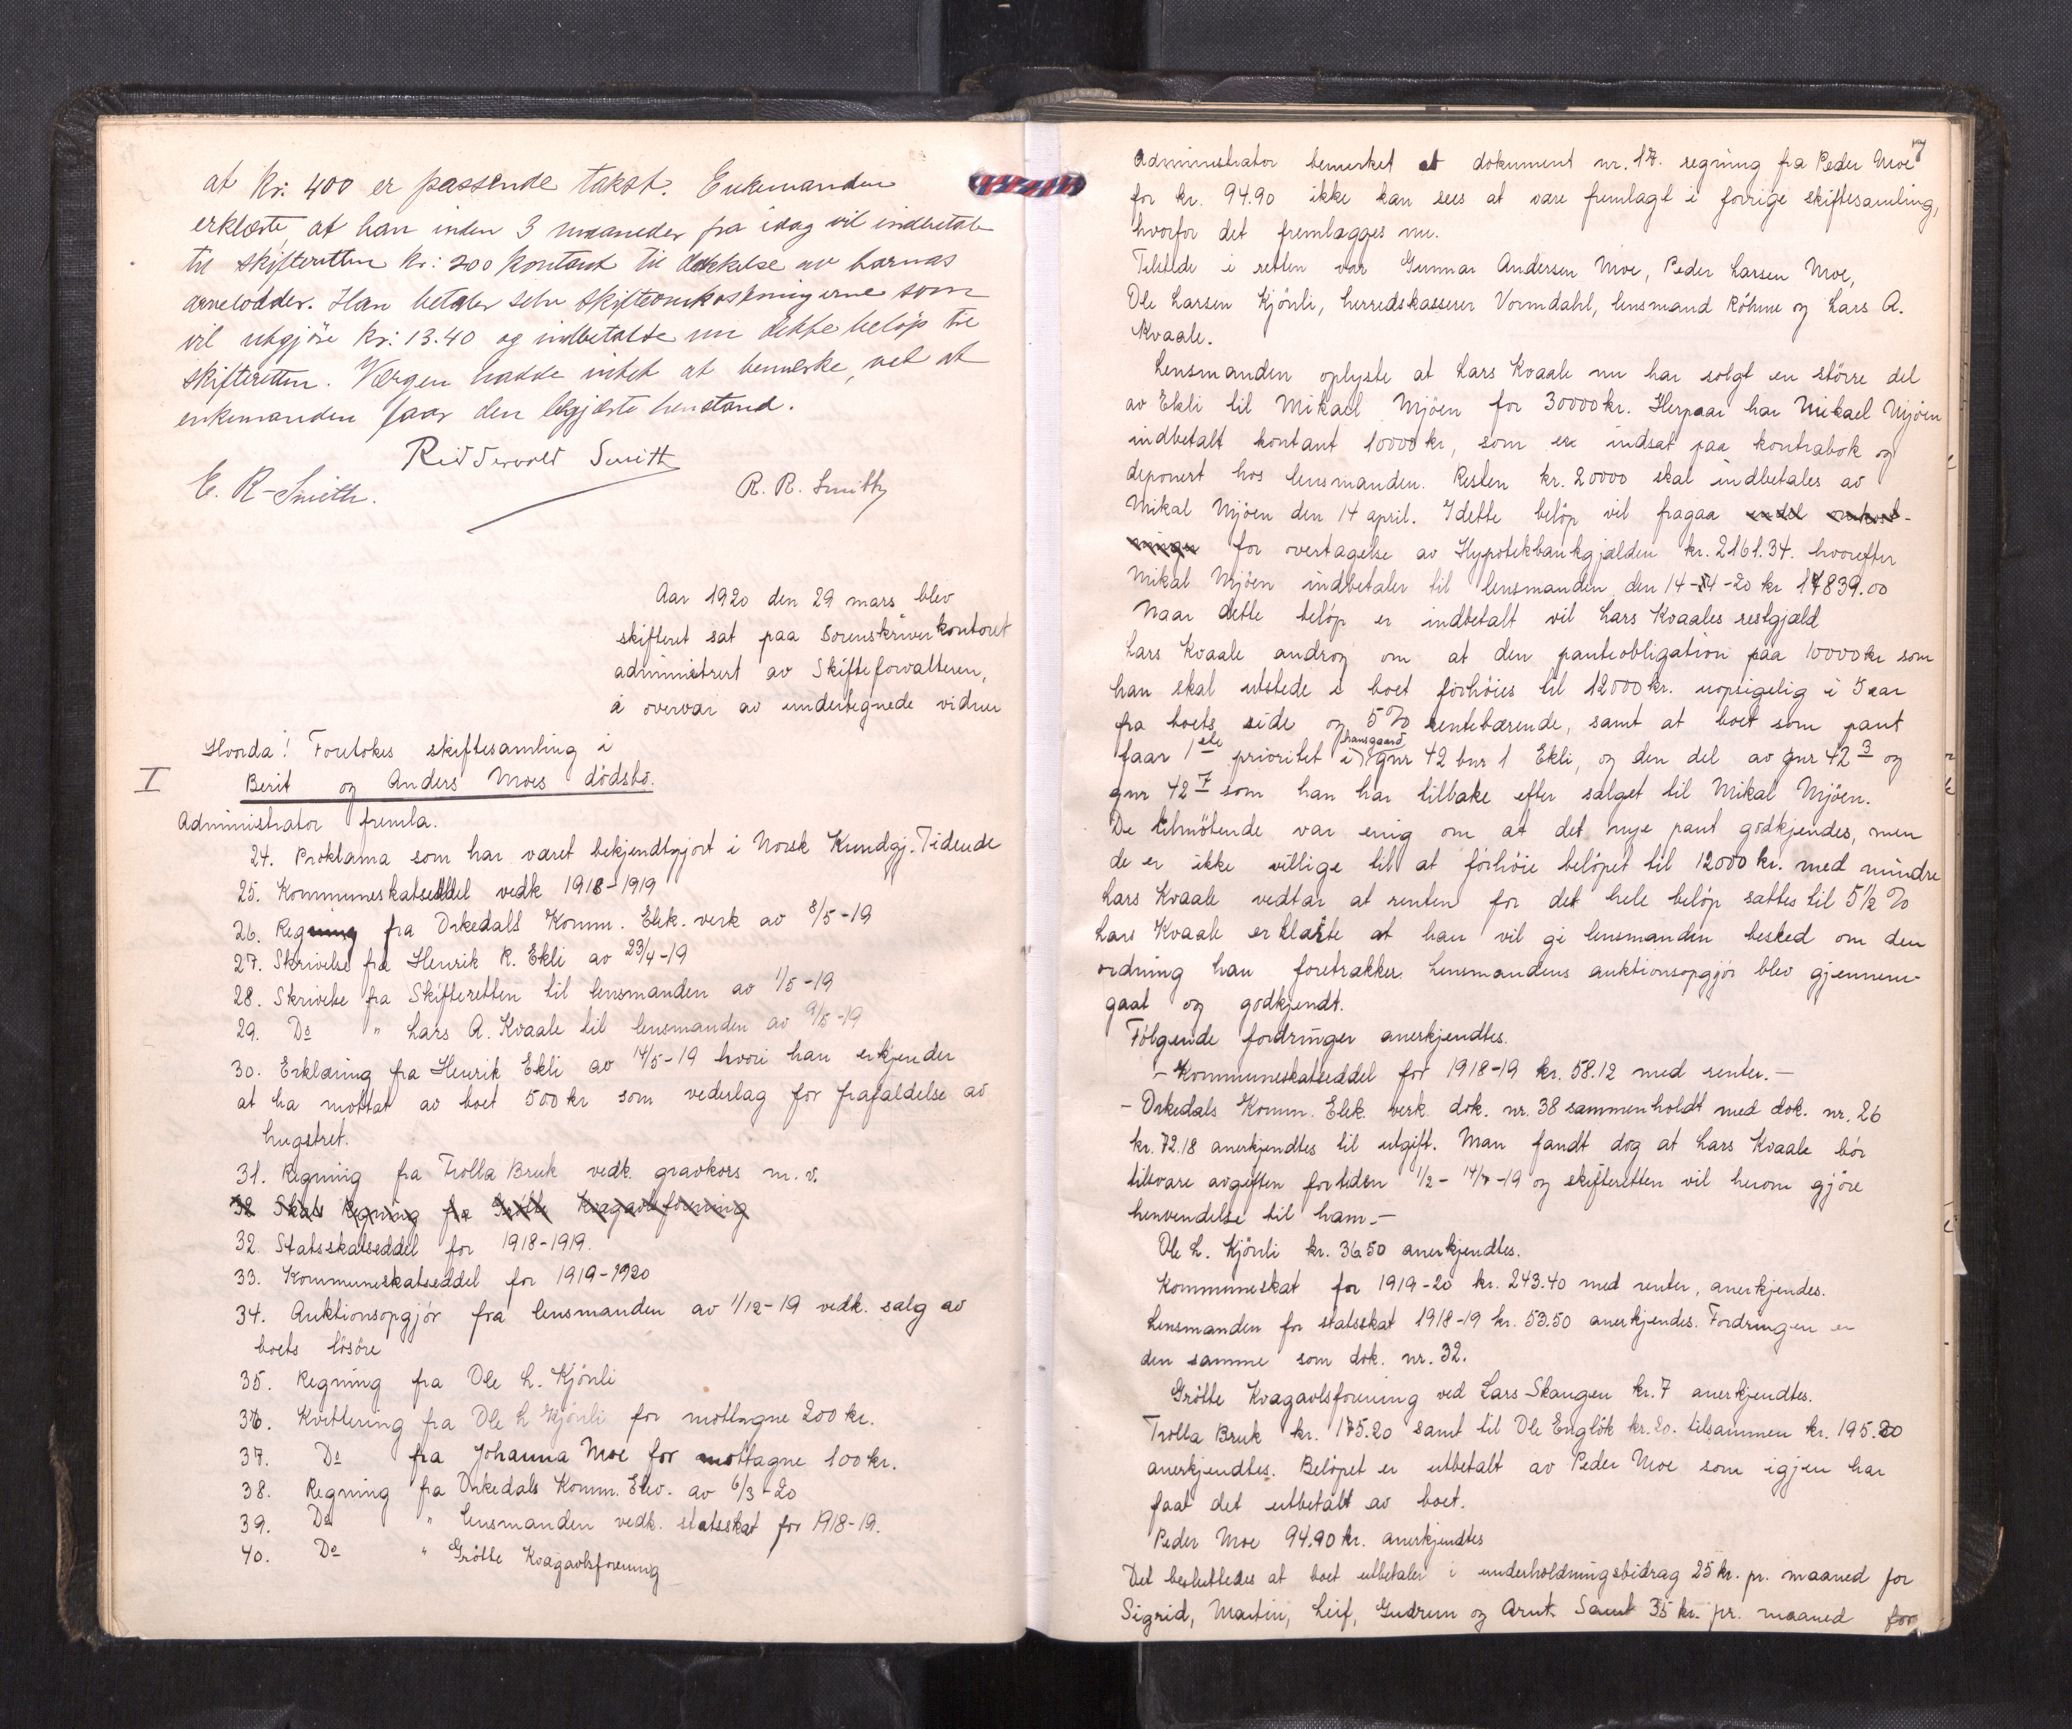 at kr: 400 er passende takst. Enkemanden
erklærte at han inden 3 maaneder fra idag vil indbetale
til skifteretten kr: 200 kontant til dækkelse av barnas
arvelodder. Han betaler selv skifteomkostningerne som
vil utgjöre kr: 13.40 og indbetalte nu dette belöp til
skifteretten. Værgen hadde intet at bemerke, ved at
enkemanden faar den begjærte henstand.
Riddervold Smith
E. R-Smith.
R. R. Smith
Aar 1920 den 29 mars blev
skifteret sat paa Sorenskriverkontoret
administrert av Skifteforvalteren,
i overvær av undertegnede vidner
Hvorda! Foretokes skiftesamling i
I
Berit og Anders Moes dödsbo.
Administrator fremla.
24. Proklama som har været bekjendtgjort i Norsk Kundgj. Tidende
25. Kommuneskatseddel vedk 1918-1919
26. Regning fra Orkedals Komm. Elek. verk av 8/5-19
27. Skrivelse fra Henrik R. Ekli av 23/4-19
28. Skrivelse fra Skifteretten til lensmanden av 1/5-19
29. Do " Lars A. Kvaale til lensmanden av 9/5-19
30. Erklæring fra Henrik Ekli av 14/5-19 hvori han erkjender
at ha mottat av boet 500 kr som vederlag for frafaldelse av
hugstret.
31. Regning fra Trolla Bruk vedk. gravkors m. v.
32 Skats Regning fra Grötte Kvægavlsforening
32. Statsskatseddel for 1918-1919.
33. Kommuneskatseddel for 1919-1920
34. Auktionsopgjör fra lensmanden av 1/12-19 vedk. salg av
boets lösöre
35. Regning fra Ole L. Kjönli
36. Kvittering fra Ole L Kjönli for mottagne 200 kr.
37. Do fra Johanna Moe for mottagne 100 kr.
38. Regning fra Orkedals Komm. Elev. av 6/3-20
39. Do " lensmanden vedk. statsskat for 1918-19.
40. Do " Grötte Kvægavlsforening
7
Administrator bemerket at dokument nr. 17. regning fra Peder Moe
for kr. 94.90 ikke kan sees at være fremlagt i forrige skiftesamling,
hvorfor det fremlægges nu.
Tilstede i retten var Gunnar Andersen Moe, Peder Larsen Moe,
Ole Larsen Kjönli, herredskasserer Vormdahl, lensmand Röhme og Lars A.
Kvaale.
Lensmanden oplyste at Lars Kvaale nu har solgt en större del
av Ekli til Mikael Mjöen for 30000 kr. Herpaa har Mikael Mjöen
indbetalt kontant 10000 kr, som er indsat paa kontrabok og
deponert hos lensmanden. Resten kr. 20000 skal indbetales av
Mikal Mjöen den 14 april. I dette belöp vil fragaa endel omkost-
ninger for overtagelse av Hypotekbankgjælden kr. 2161.34. hvorefter
Mikal Mjöen indbetaler til lensmanden den 14-4-20 kr 17839.00
Naar dette belöp er indbetalt vil Lars Kvaales restgjæld
Lars Kvaale androg om at den panteobligation paa 10000 kr som
han skal utstede i boet forhöies til 12000 kr. uopsigelig i 5 aar
fra boets side og 5% rentebærende, samt at boet som pant
faar 1ste prioritet i gnr 42 bnr 1 Ekli, og den del av gnr 42 3 og
gnr 42 7 som han har tilbake efter salget til Mikal Mjöen.
De tilmötende var enig om at det nye pant godkjendes, men
de er ikke villige til at forhöie belöpet til 12000 kr. med mindre
Lars Kvaale vedtar at renten for det hele belöp sættes til 5½ %
Lars Kvaale erklærte at han vil gi lensmanden besked om den
ordning han foretrækker. Lensmandens auktionsopgjör blev gjennem-
gaat og godkjendt.
Fölgende fordringer anerkjendtes.
- Kommuneskatseddel for 1918-19 kr. 58.12 med renter. -
- Orkedals Komm. Elek. verk dok. nr. 38 sammenholdt med dok. nr. 26
kr. 72.18 anerkjendtes til utgift. Man fandt dog at Lars Kvaale bör
tilsvare avgiften for tiden 1/2 - 14/7-19 og skifteretten vil herom gjöre
henvendelse til ham. -
Ole L. Kjönli kr. 36.50 anerkjendtes.
Kommuneskat for 1919-20 kr. 243.40 med renter, anerkjendes.
Lensmanden for statsskat 1918-19 kr. 53.50 anerkjendes. Fordringen er
den samme som dok. nr. 32.
Grötte Kvægavlsforening ved Lars Skaugen kr. 7 anerkjendtes.
Trolla Bruk kr. 175.20 samt til Ole Englök kr. 20. tilsammen kr. 195.20
anerkjendtes. Belöpet er utbetalt av Peder Moe som igjen har
faat det utbetalt av boet.
Peder Moe 94.90 kr. anerkjendtes
Det besluttedes at boet utbetaler i underholdningsbidrag 25 kr. pr. maaned for
Sigrid, Martin, Leif, Gudrun og Arnt. Samt 35 kr. pr. maaned for